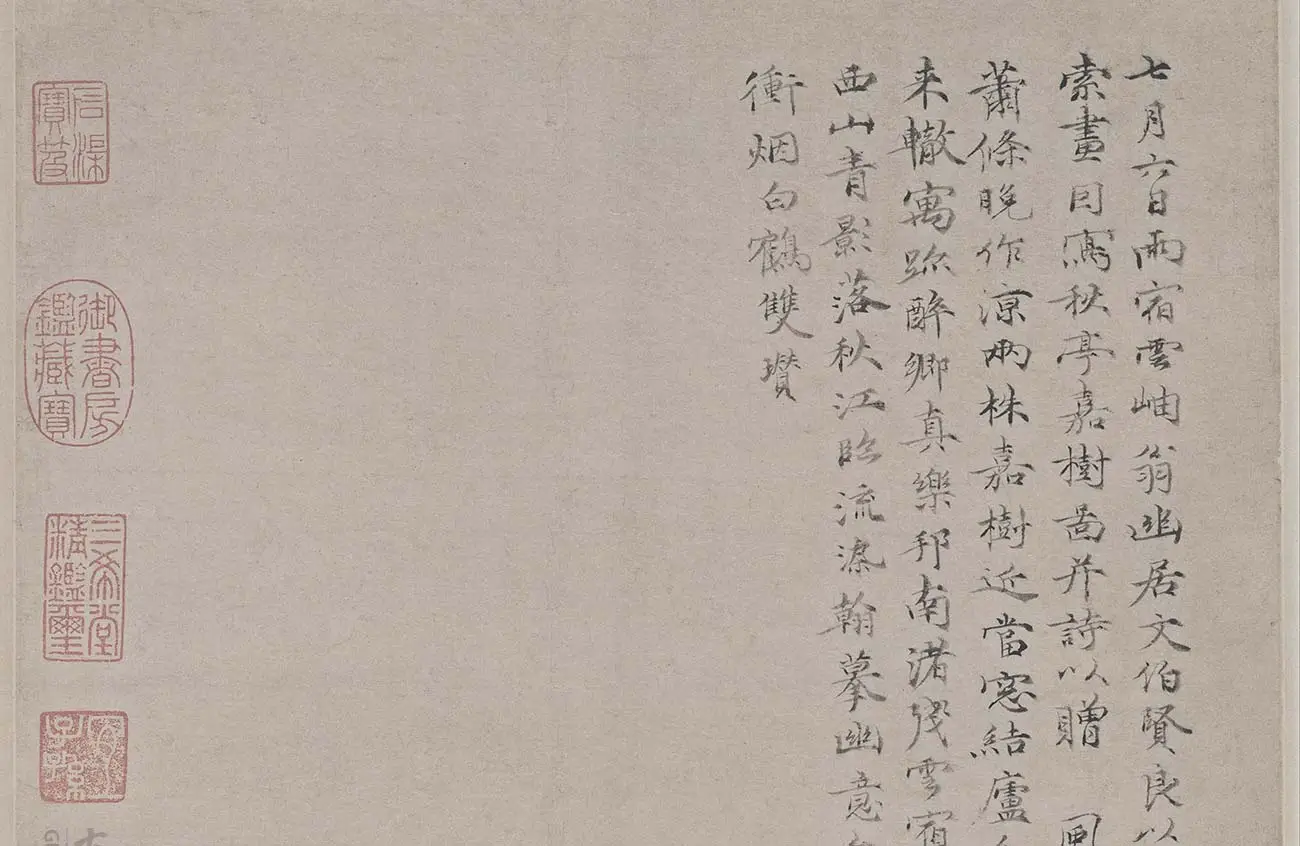 七月六日雨宿雲岫翁幽居文伯賢良以
索畫因寫秋亭嘉樹啚并詩以贈 風
蕭條晚作涼兩株嘉樹近當窓結廬
来轍寓跡醉鄉真樂邦南渚殘雲宿
西山青影落秋江臨流染翰摹幽意
衝烟白鶴雙瓚
后渠寶笈
御書房鑑藏寶
三希堂精鑑璽